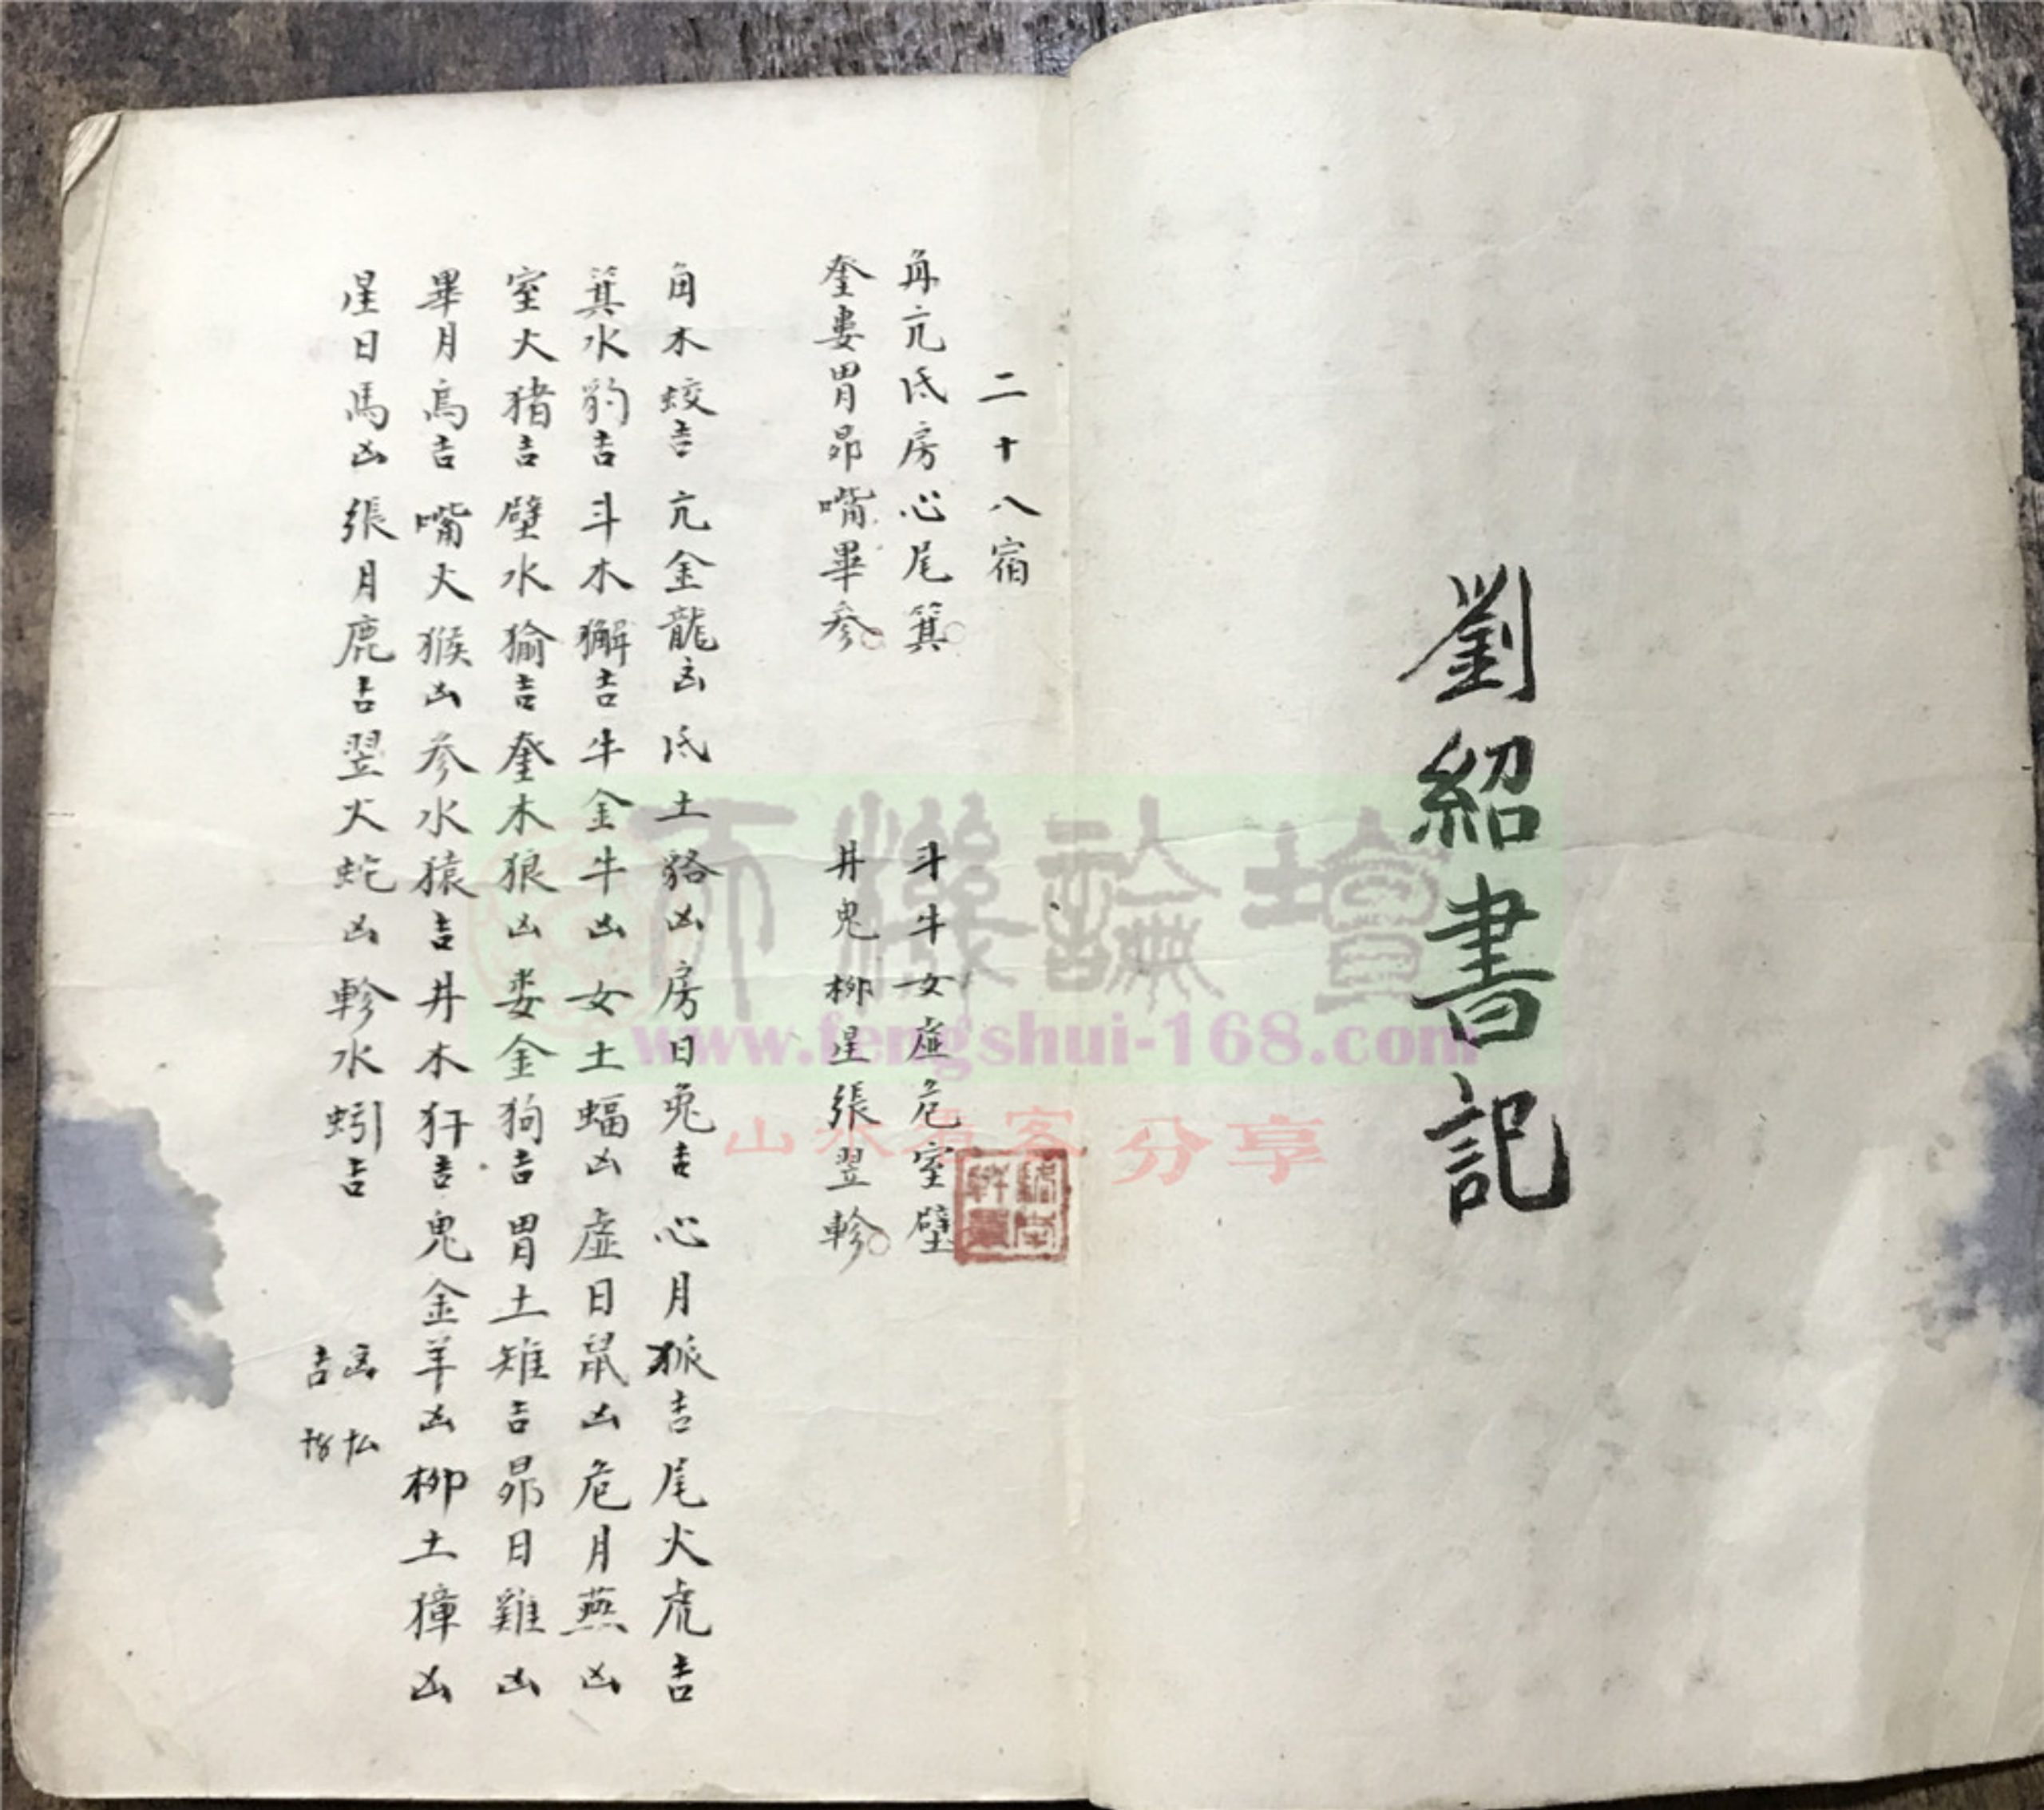 劉紹書記
二十八宿
角亢氐房心尾箕 斗牛女虛危室壁
奎婁胃昴嘴畢参 井鬼柳星張翌軫
角木蛟吉 亢金龍凶 氐土貉凶 房日兎吉 心月狐吉 尾火虎吉
箕水豹吉 斗木獬吉 牛金牛凶 女土蝠凶 虛日鼠凶 危月燕凶
室火猪吉 壁水㺄吉 奎木狼凶 娄金狗吉 胃土雉吉 昴日雞凶
畢月烏吉 嘴火猴凶 参水猿吉 井木犴吉 鬼金羊凶 柳土獐凶
星日馬凶 張月鹿吉 翌火蛇凶 軫水蚓吉
論壇
www.fengshui-168.com
分享